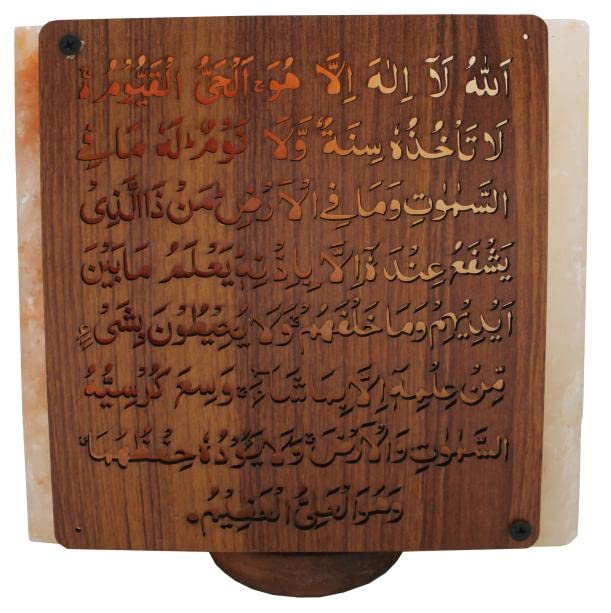 اَللّٰهُ لَآ اِلٰهَ اِلَّا هُوَ ۚ اَلْحَىُّ الْقَيُّوْمُ ۚ
لَا تَاْخُذُهٗ سِنَةٌ وَّلَا نَوْمٌ ؕ لَهٗ مَا فِى
السَّمٰوٰتِ وَمَا فِى الْاَرْضِ ؕ مَنْ ذَا الَّذِىْ
يَشْفَعُ عِنْدَهٗۤ اِلَّا بِاِذْنِهٖ ؕ يَعْلَمُ مَا بَيْنَ
اَيْدِيْهِمْ وَمَا خَلْفَهُمْ ۚ وَلَا يُحِيْطُوْنَ بِشَىْءٍ
مِّنْ عِلْمِهٖۤ اِلَّا بِمَا شَآءَ ۚ وَسِعَ كُرْسِيُّهُ
السَّمٰوٰتِ وَالْاَرْضَ ۚ وَلَا يَـُٔوْدُهٗ حِفْظُهُمَا ۚ
وَهُوَ الْعَلِىُّ الْعَظِيْمُ .